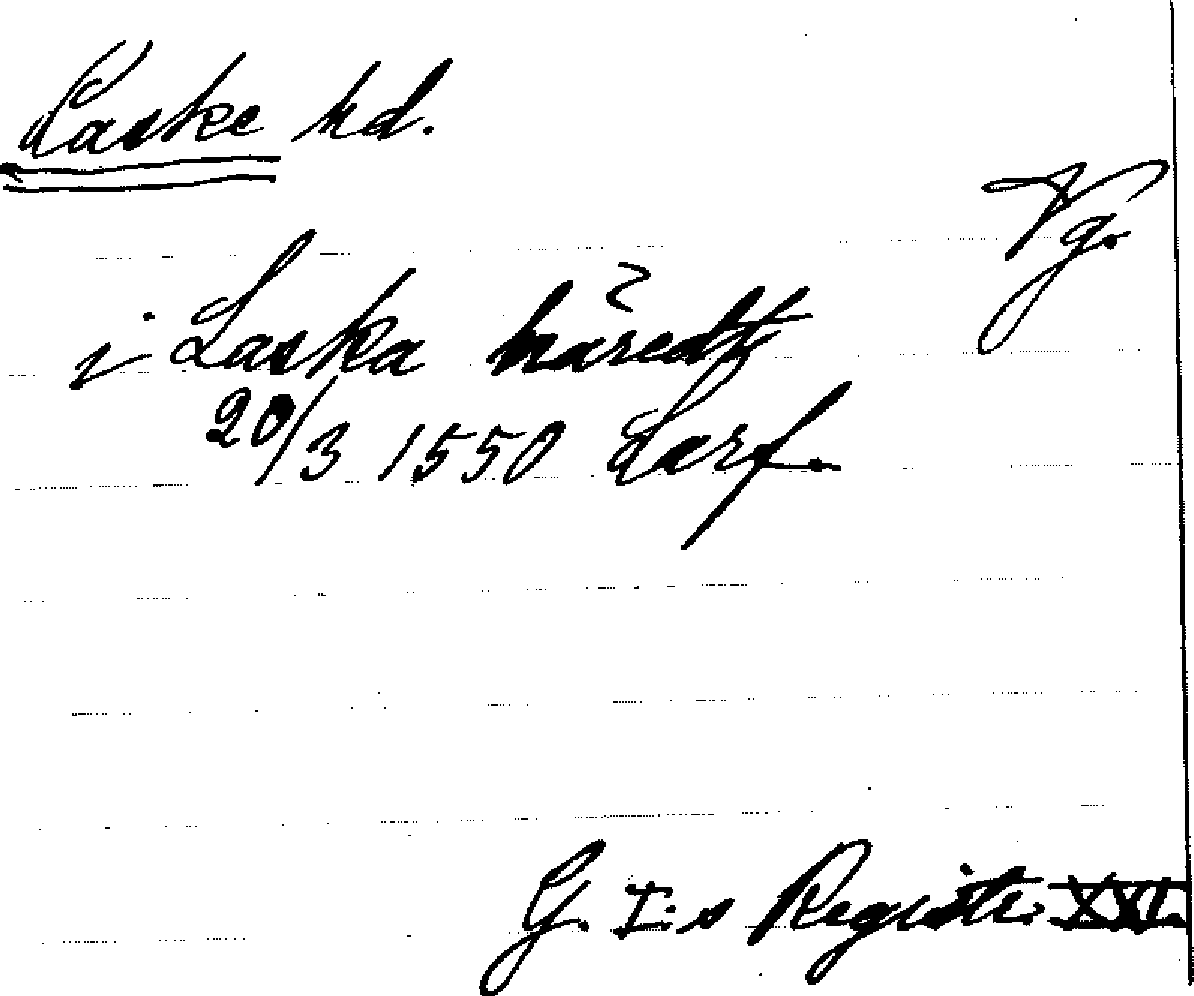 Laske hd.
Vg.
i Laska häredt
20/3 1550 Larf.
G. I:s Registr. XXI.